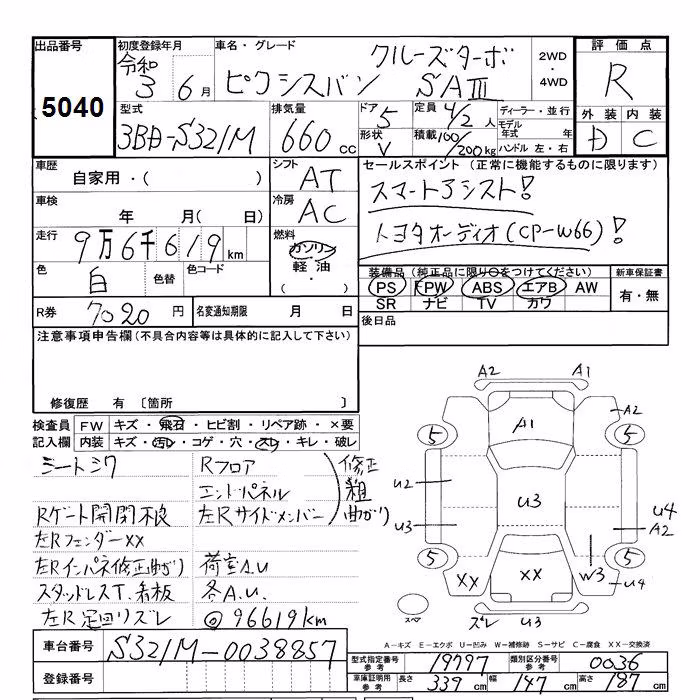 出品番号
5040
初度登録年月
令和 3 年 6 月
車名・グレード
クルーズターボ
ピクシスバン SAⅢ
2WD・4WD
評価点
R
外装 内装
D C
型式
3BD-S321M
排気量
660 cc
ドア 5
形状 V
定員 4/2 人
積載 100/200kg
ディーラー・並行
モデル年式 年
ハンドル 左・右
車歴
自家用・( )
シフト AT
セールスポイント (正常に機能するものに限ります)
スマートアシスト!
トヨタオーディオ(CP-W66)!
車検
年 月( 日)
冷房 AC
走行
9万6千619km
燃料
ガソリン
軽油
( ・ )
色
白
色替
色コード
装備品 (純正品に限り○をつけてください)
PS PW ABS エアB AW
SR ナビ TV カワ
新車保証書
有・無
R券
7020円
名変通知期限 月 日
後日品
注意事項申告欄(不具合内容等は具体的に記入して下さい)
修復歴 有 〔箇所 〕
検査員記入欄
FW キズ・飛石・ヒビ割・リペア跡・×要
内装 キズ・汚レ・コゲ・穴・スレ・キレ・破レ
シートシワ
Rフロア
エンドパネル
左Rサイドメンバー
修正
粗
曲がり
Rゲート開閉不良
左Rフェンダー××
左Rインパネ修正曲がり
荷室A.U
スタッドレスT. 看板
各A.U.
左R足回リズレ
◎96619km
A2 A1
A1
A2
5 5
U2
U3
U3
U4
A2
5 5
XX
XX
W3
U4
スペア
ズレ U3
A－キズ E－エクボ U－凹み W－補修跡 S－サビ C－腐食 XX－交換済
車台番号
S321M-0038857
登録番号
型式指定番号参考 19797
類別区分番号参考 0036
車庫証明用参考
長さ 339 cm
幅 147 cm
高さ 187 cm